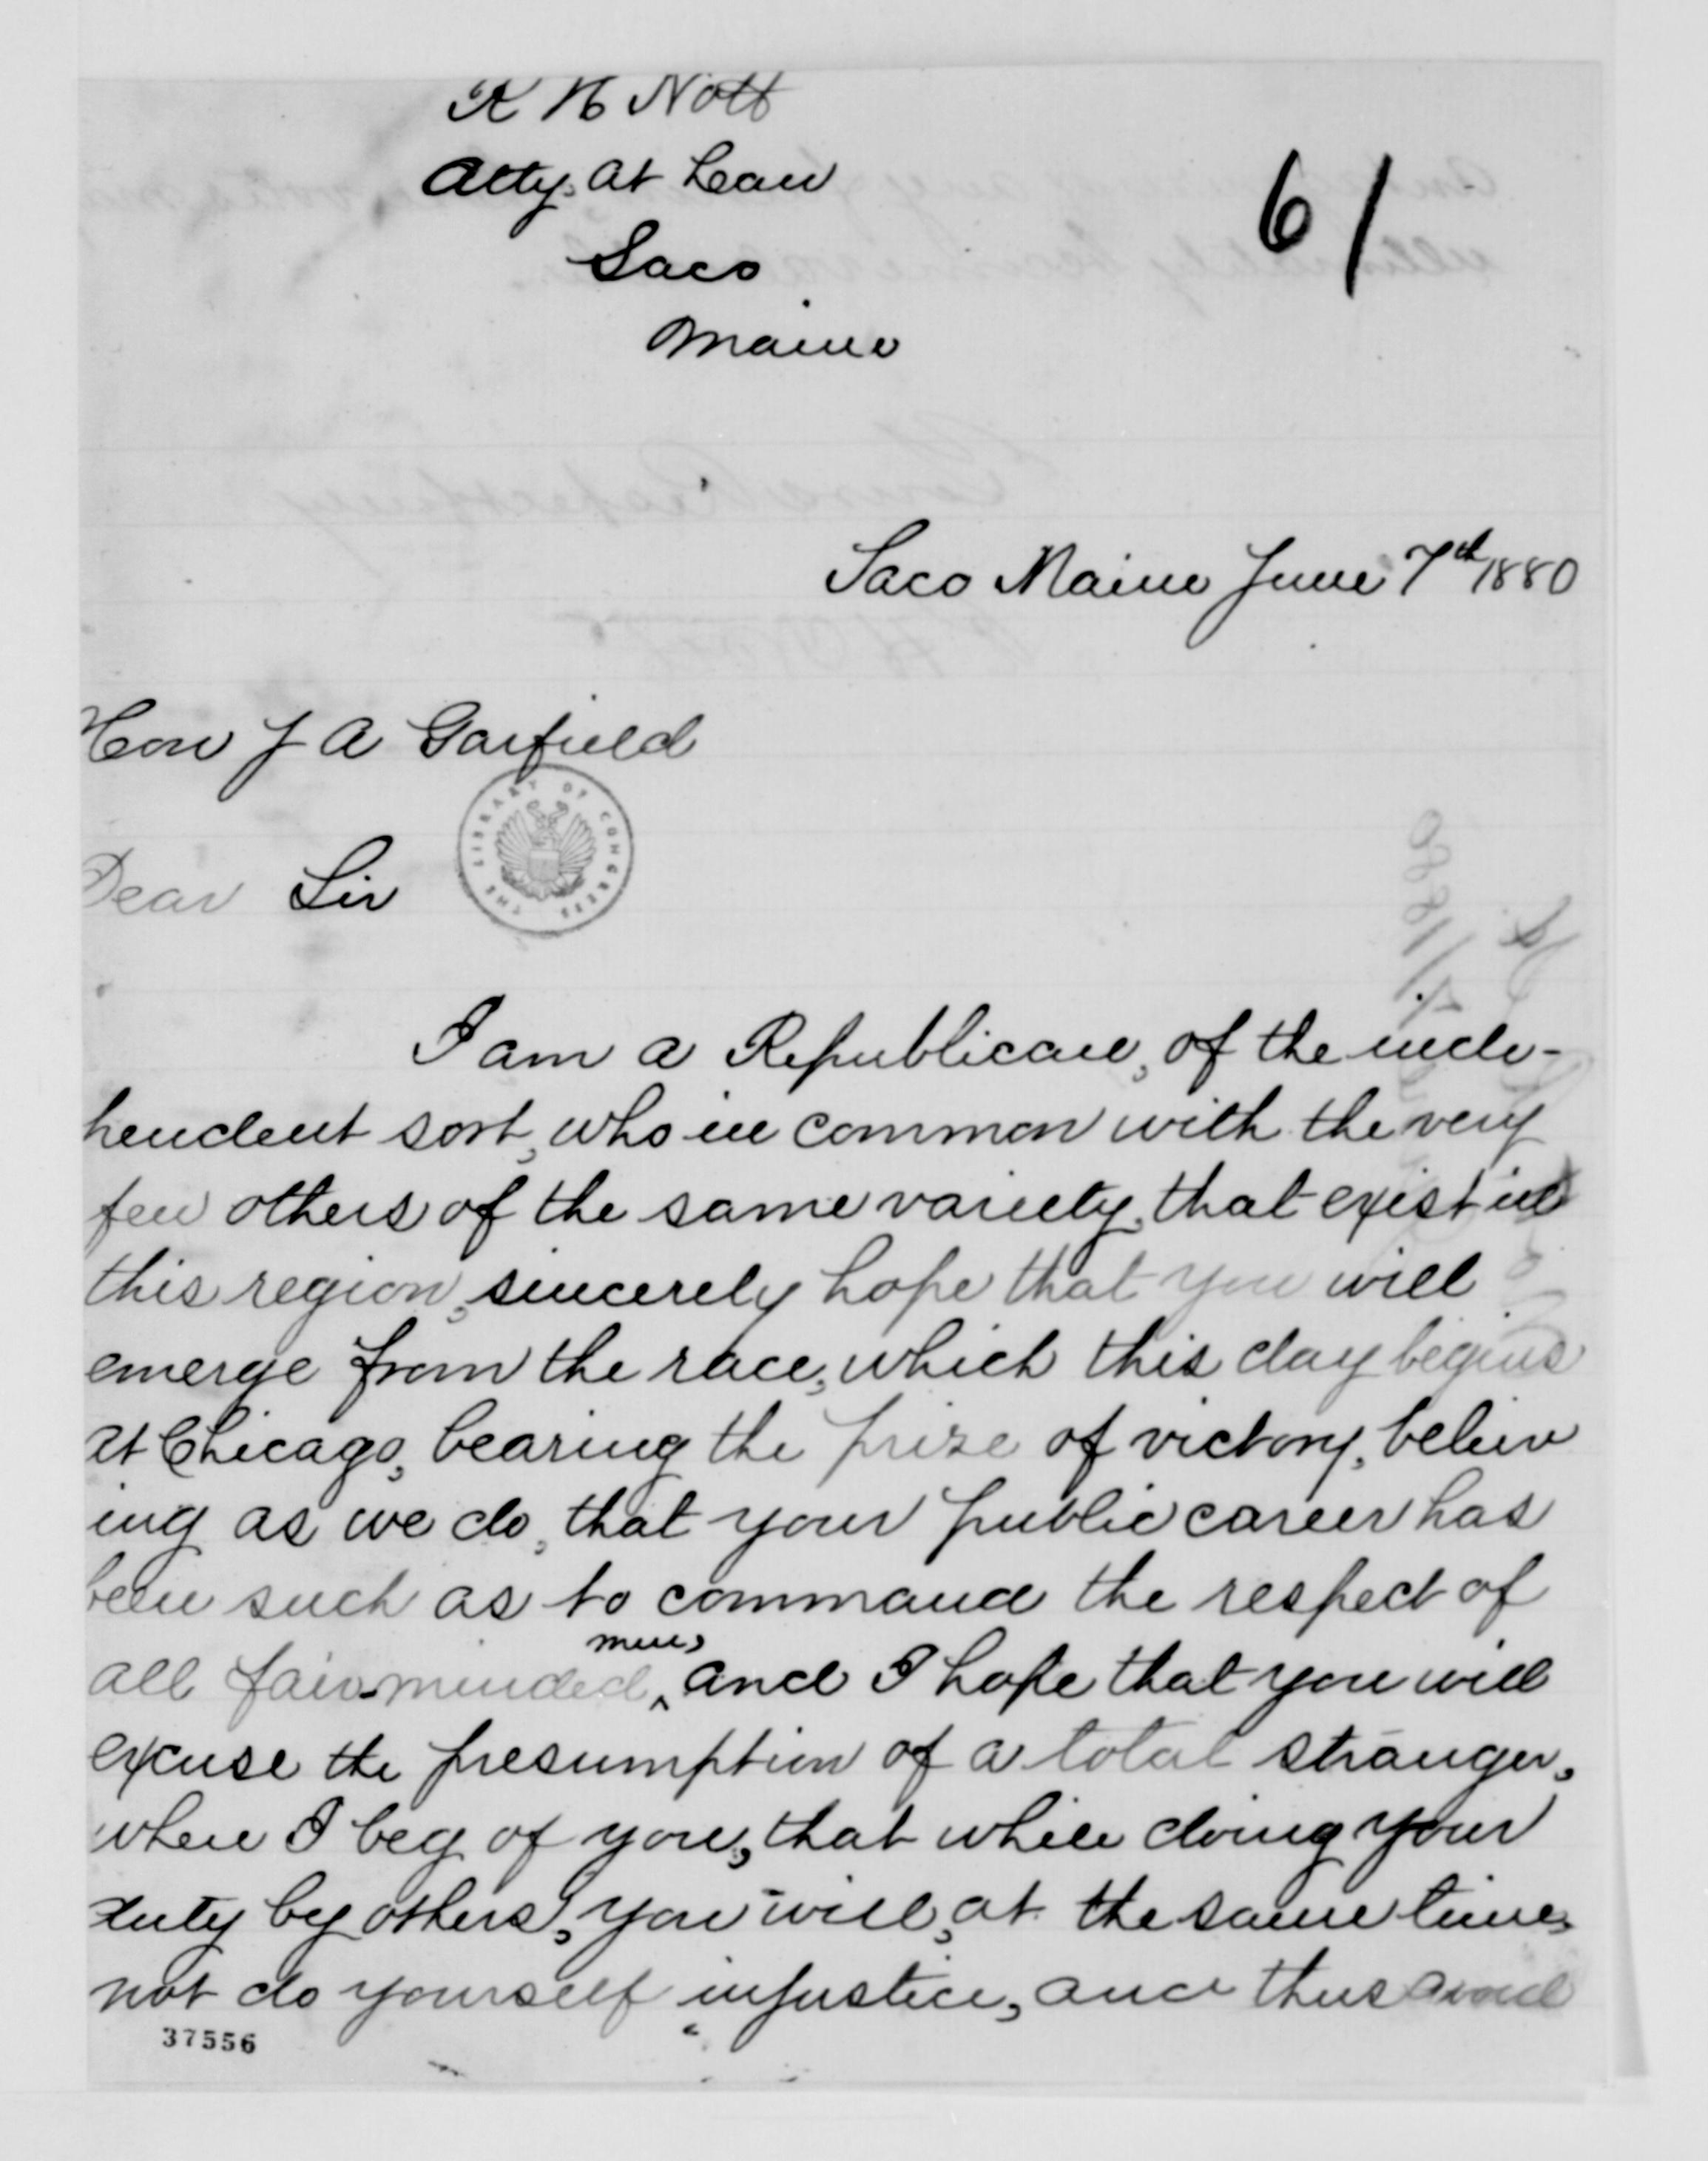 R H Nott
Atty. at Law
Saco
Maine
61
Saco Maine June 7th 1880
Hon J A Garfield
THE LIBRARY OF CONGRESS
Dear Sir
I am a Republican, of the inde-
pendent sort, who in common with the very
few others of the same variety, that exist in
this region, sincerely hope that you will
emerge from the race, which this day begins
at Chicago, bearing the prize of victory, believ
ing as we do, that your public career has
been such as to command the respect of
men,
all fair-minded ^ and I hope that you will
excuse the presumption of a total stranger,
when I beg of you, that while doing your
duty by others, you will, at the same time,
not do yourself injustice, and thus avoid
37556